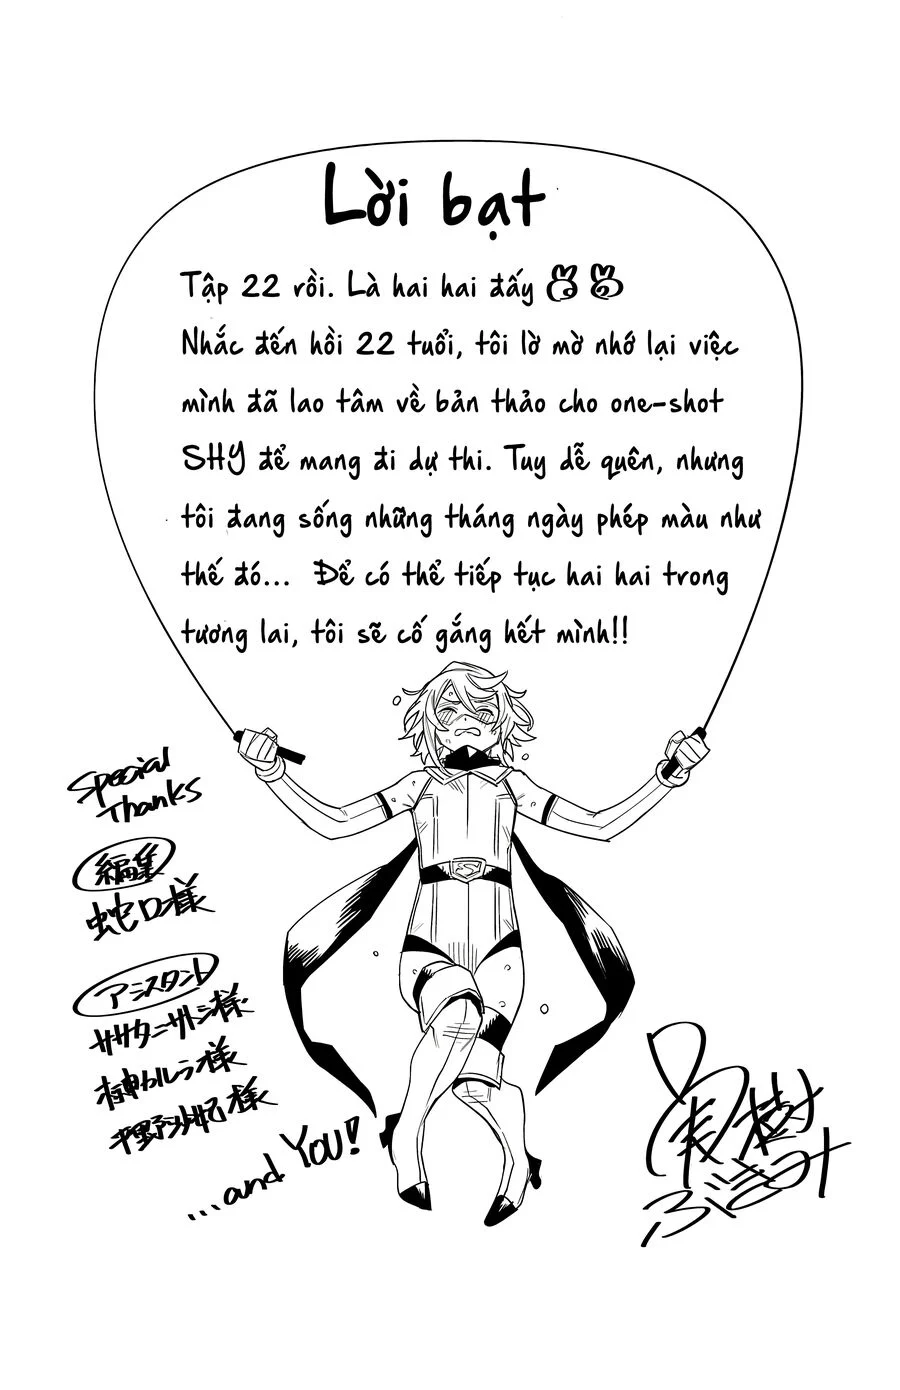 Lời bạt
Tập 22 rồi. Là hai hai đấy
Nhắc đến hồi 22 tuổi, tôi lờ mờ nhớ lại việc
mình đã lao tâm về bản thảo cho one-shot
SHY để mang đi dự thi. Tuy dễ quên, nhưng
tôi đang sống những tháng ngày phép màu như
thế đó... Để có thể tiếp tục hai hai trong
tương lai, tôi sẽ cố gắng hết mình!!
Special
Thanks
編集
蛇口様
アシスタント
ササタニサトシ様
様
平野様
...and YOU!
S
実樹
ぶきみ